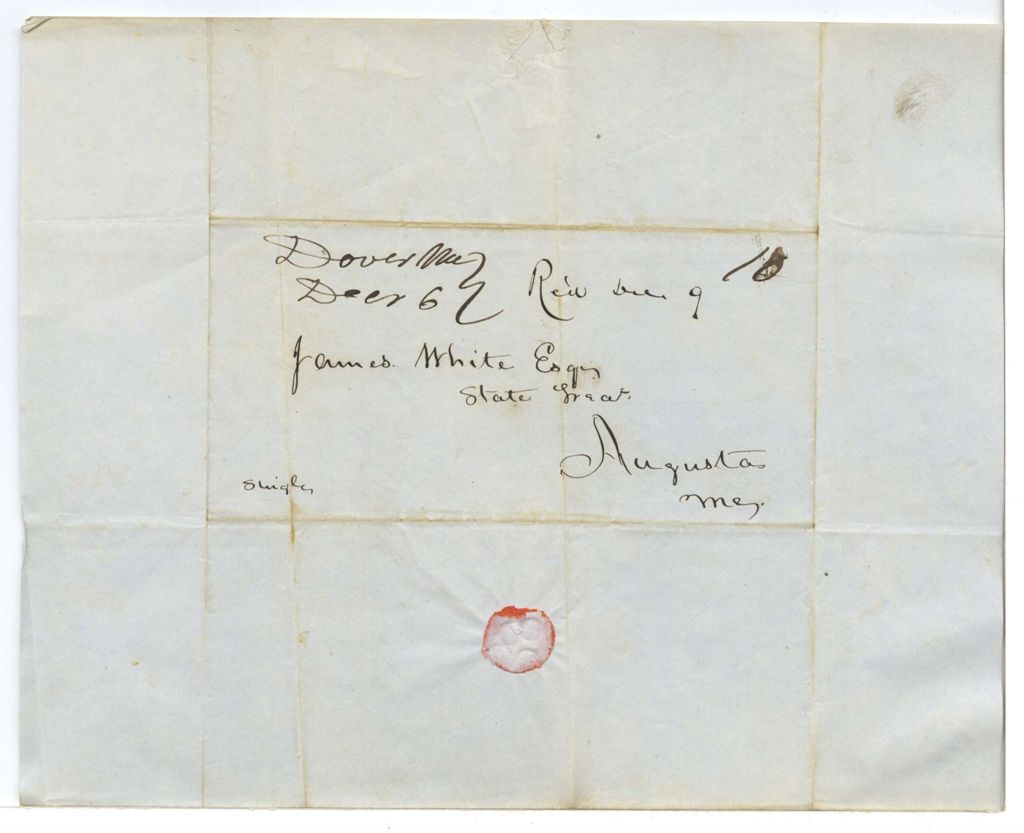 Dover Me
Decr 6
Rc'd Dec. 9
10
James White Esqr
State Treasr.
Augusta
Me.
Single